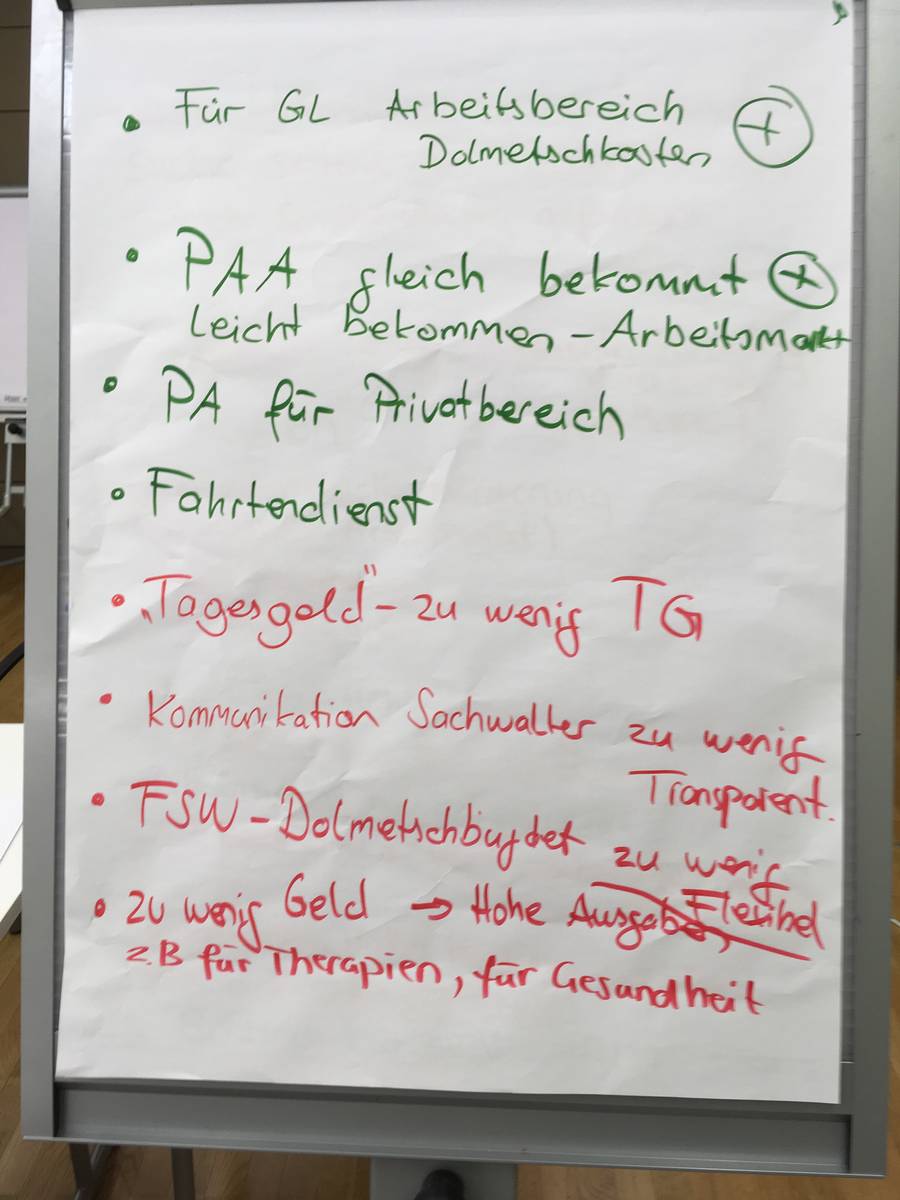 • Für GL Arbeitsbereich (+)
Dolmetschkosten
• PAA gleich bekommt (+)
leicht bekommen - Arbeitsmarkt
• PA für Privatbereich
• Fahrtendienst
• „Tagesgeld" - zu wenig TG
• Kommunikation Sachwalter zu wenig
Transparent.
• FSW - Dolmetschbuydet zu wenig
Flexibel
• zu wenig Geld → Hohe Ausgaben,
z.B für Therapien, für Gesundheit